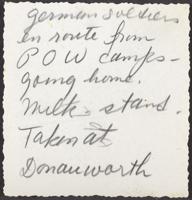 german soldiers
en route from
POW camps -
going home.
Milk stand.
Taken at
Donauworth